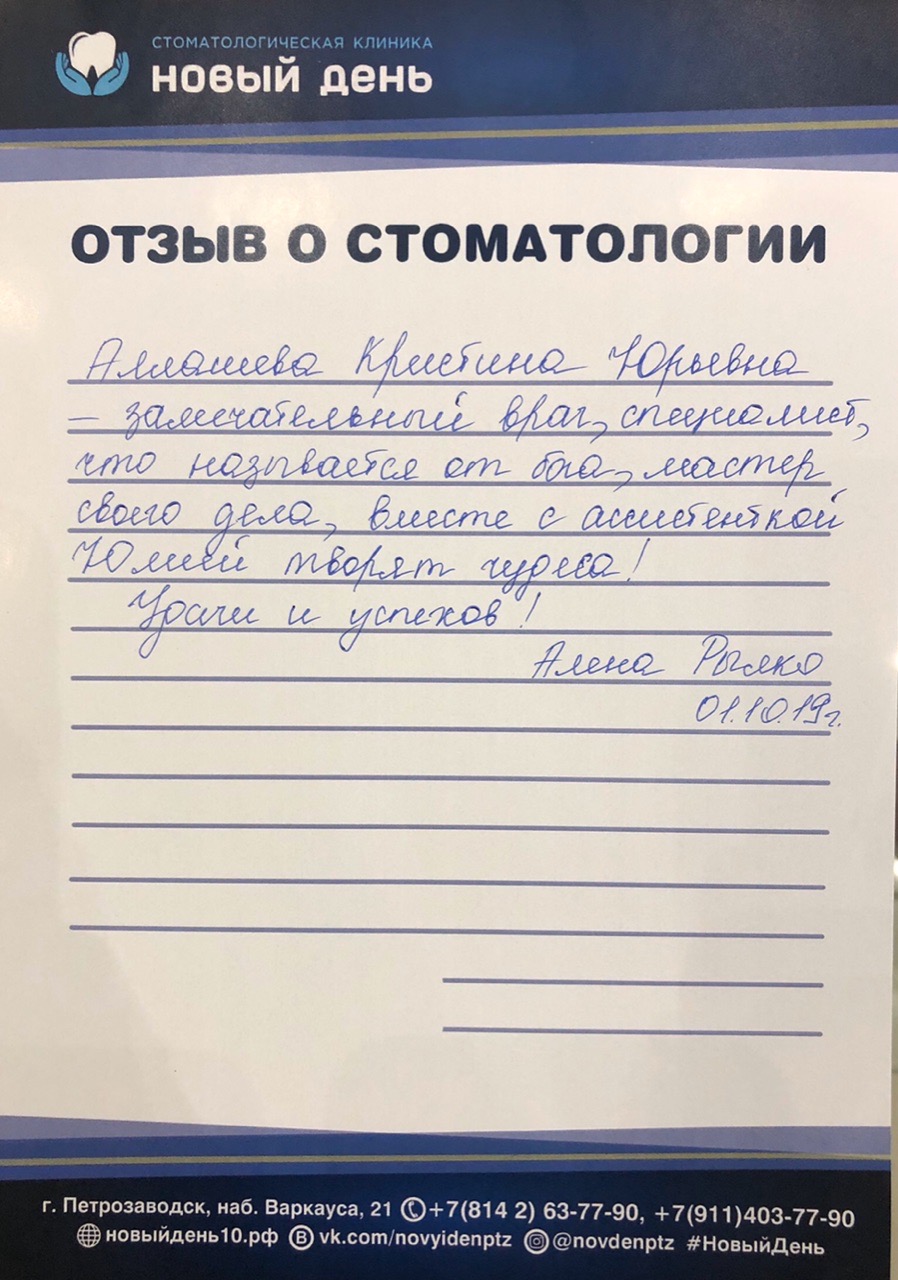 СТОМАТОЛОГИЧЕСКАЯ КЛИНИКА
НОВЫЙ ДЕНЬ
ОТЗЫВ О СТОМАТОЛОГИИ
Кристина Юрьевна
– замечательный врач, специалист,
что называется от бога, мастер
своего дела, вместе с ассистенткой
Юлией творят чудеса!
Удачи и успехов!
Алена Рылко
01.10.19г.
г. Петрозаводск, наб. Варкауса, 21 +7(814 2) 63-77-90, +7(911)403-77-90
новыйдень10.рф vk.com/novyidenptz @novdenptz #НовыйДень